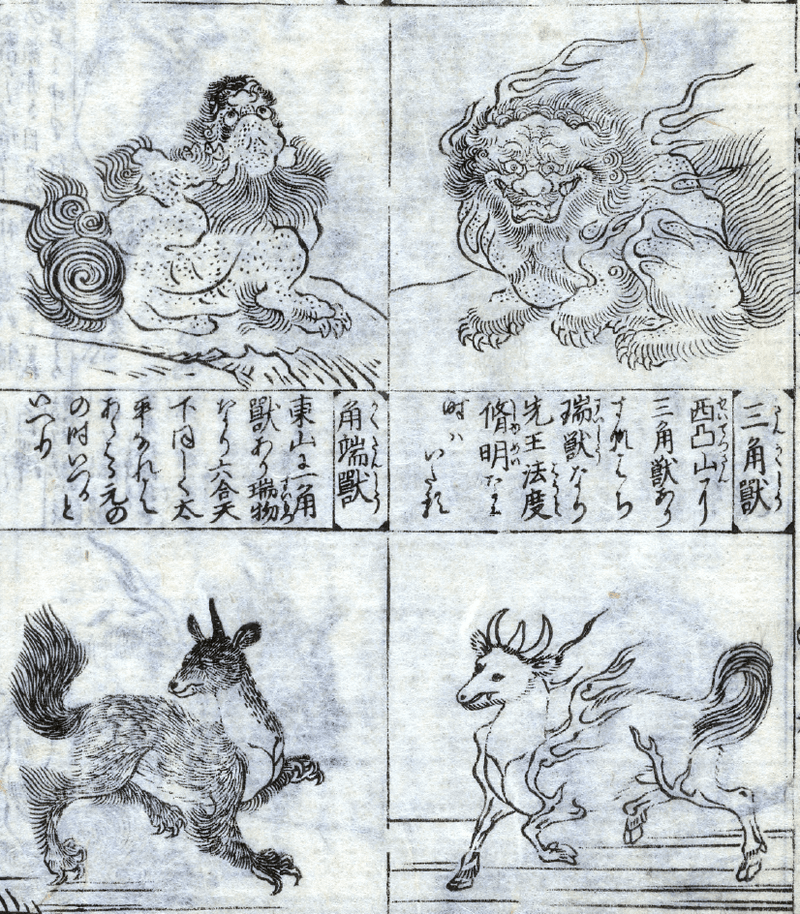 三角獸
さんかくじう
西凸山に
せいとつさん
三角獣あり
すなはち
瑞獣なり
ずいじう
先王法度
はつと
脩明なる
しゆめい
時ハいたる
角端獸
かくたんじう
東山に一角
獸あり瑞物
なり六合天
下同しく太
平なれは
あらはる元の
の時いつると
いへり